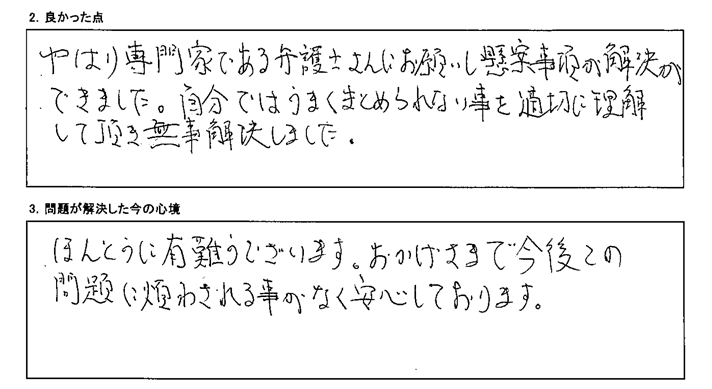 2. 良かった点
やはり専門家である弁護士さんにお願いし懸案事項が解決が
できました。自分ではうまくまとめられない事を適切に理解
して頂き無事解決しました。
3. 問題が解決した今の心境
ほんとうに有難うございます。おかげさまで今後この
問題に煩わされる事がなく安心しております。